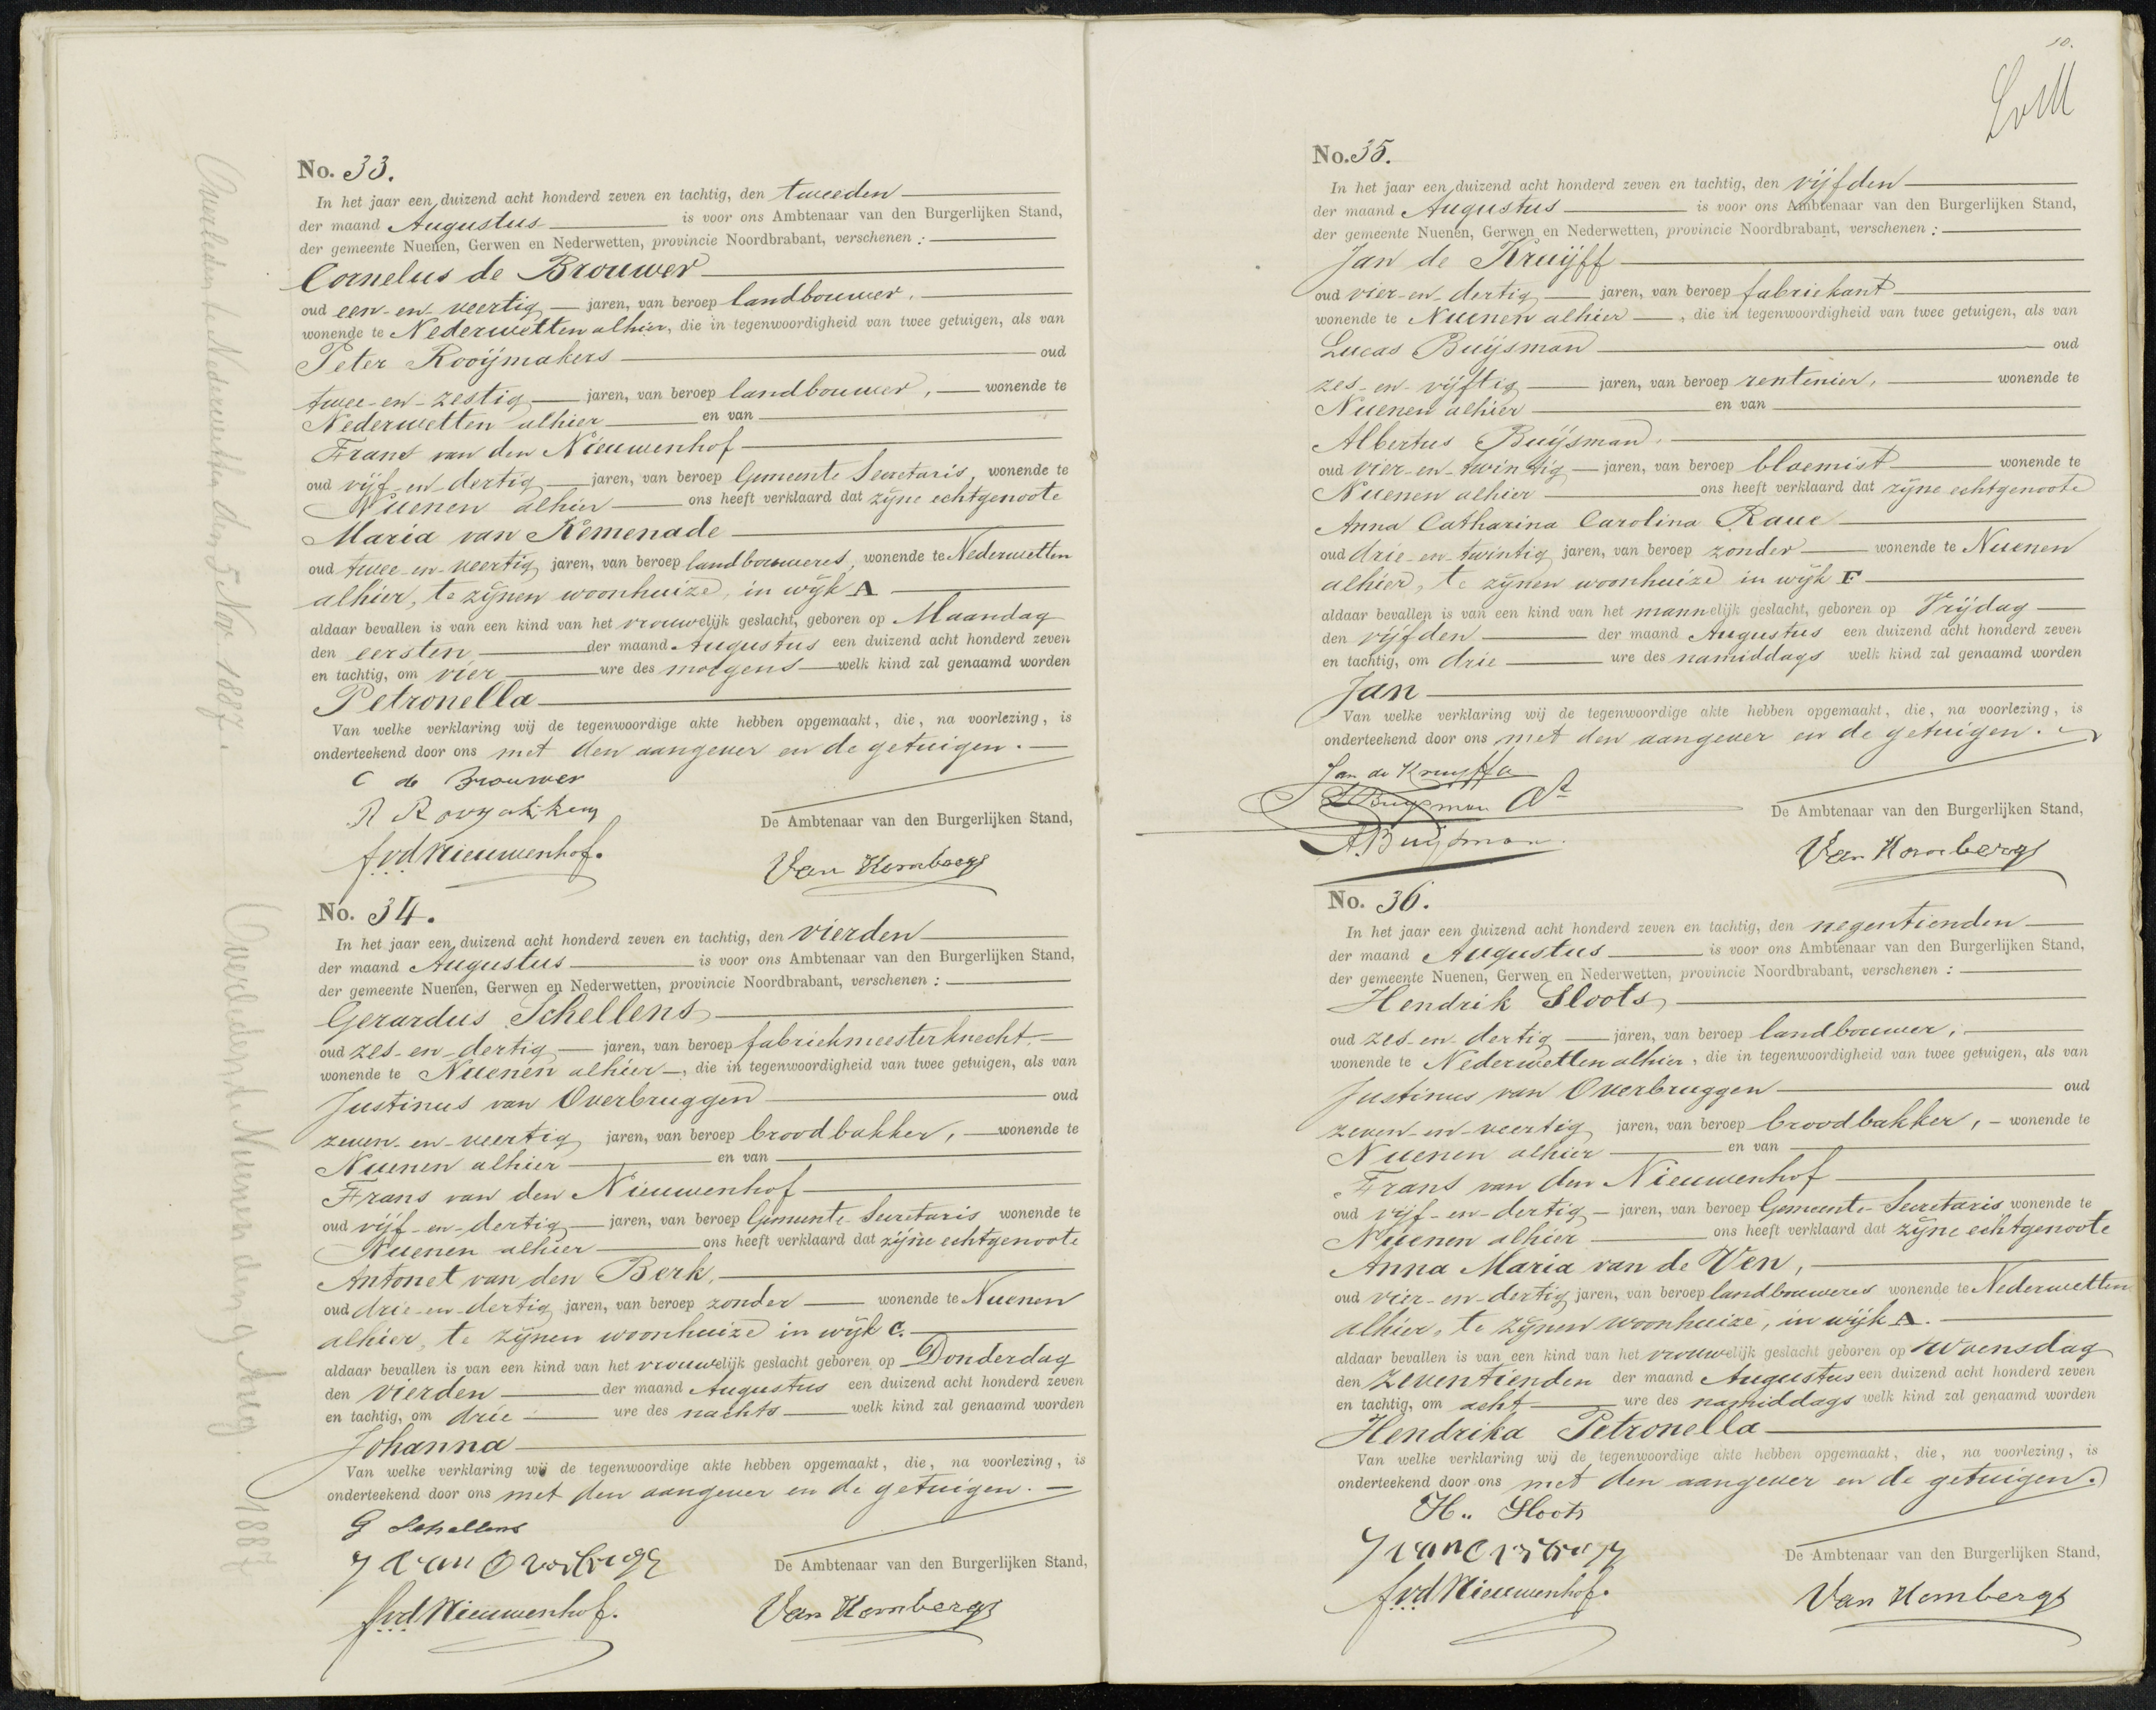 Overleden te Nederwetten den 5 Nov. 1887.
No. 33.
In het jaar een duizend acht honderd zeven en tachtig, den tweeden
der maand Augustus is voor ons Ambtenaar van den Burgerlijken Stand,
der gemeente Nuenen, Gerwen en Nederwetten, provincie Noordbrabant, verschenen:
Cornelus de Brouwer
oud een-en-veertig jaren, van beroep landbouwer,
wonende te Nederwetten alhier, die in tegenwoordigheid van twee getuigen, als van
Peter Rooijmakers oud
twee-en-zestig jaren, van beroep landbouwer, wonende te
Nederwetten alhier en van
Frans van den Nieuwenhof
oud vijf-en-dertig jaren, van beroep Gemeente Secretaris, wonende te
Nuenen alhier ons heeft verklaard dat zijne echtgenoote
Maria van Kemenade
oud twee-en-veertig jaren, van beroep landbouweres, wonende te Nederwetten
alhier, te zijnen woonhuize, in wijk A
aldaar bevallen is van een kind van het vrouwelijk geslacht, geboren op Maandag
den eersten der maand Augustus een duizend acht honderd zeven
en tachtig, om vier ure des morgens welk kind zal genaamd worden
Petronella
Van welke verklaring wij de tegenwoordige akte hebben opgemaakt, die, na voorlezing, is
onderteekend door ons met den aangever en de getuigen.
C de Brouwer
De Ambtenaar van den Burgerlijken Stand,
fvdNieuwenhof.
Overleden te Nuenen den 9 Aug. 1887
No. 34.
In het jaar een duizend acht honderd zeven en tachtig, den vierden
der maand Augustus is voor ons Ambtenaar van den Burgerlijken Stand,
der gemeente Nuenen, Gerwen en Nederwetten, provincie Noordbrabant, verschenen:
Gerardus Schellens
oud zes-en-dertig jaren, van beroep fabriekmeesterknecht,
wonende te Nuenen alhier, die in tegenwoordigheid van twee getuigen, als van
Justinus van Overbruggen oud
zeven-en-veertig jaren, van beroep broodbakker, wonende te
Nuenen alhier en van
Frans van den Nieuwenhof
oud vijf-en-dertig jaren, van beroep Gemeente-Secretaris wonende te
Nuenen alhier ons heeft verklaard dat zijne echtgenoote
Antonet van den Berk,
oud drie-en-dertig jaren, van beroep zonder wonende te Nuenen
alhier, te zijnen woonhuize in wijk C.
aldaar bevallen is van een kind van het vrouwelijk geslacht geboren op Donderdag
den vierden der maand Augustus een duizend acht honderd zeven
en tachtig, om drie ure des nachts welk kind zal genaamd worden
Johanna
Van welke verklaring wij de tegenwoordige akte hebben opgemaakt, die, na voorlezing, is
onderteekend door ons met den aangever en de getuigen.
G Schellens
De Ambtenaar van den Burgerlijken Stand,
fvdNieuwenhof.
Van Hombergh
10.
No. 35.
In het jaar een duizend acht honderd zeven en tachtig, den vijfden
der maand Augustus is voor ons Ambtenaar van den Burgerlijken Stand,
der gemeente Nuenen, Gerwen en Nederwetten, provincie Noordbrabant, verschenen:
Jan de Kruijff
oud vier-en-dertig jaren, van beroep fabriekant
wonende te Nuenen alhier, die in tegenwoordigheid van twee getuigen, als van
Lucas Buijsman oud
zes-en-vijftig jaren, van beroep rentenier, wonende te
Nuenen alhier en van
Albertus Buijsman,
oud vier-en-twintig jaren, van beroep bloemist wonende te
Nuenen alhier ons heeft verklaard dat zijne echtgenoote
Anna Catharina Carolina Raue
oud drie-en-twintig jaren, van beroep zonder wonende te Nuenen
alhier, te zijnen woonhuize in wijk F
aldaar bevallen is van een kind van het mannelijk geslacht, geboren op Vrijdag
den vijfden der maand Augustus een duizend acht honderd zeven
en tachtig, om drie ure des namiddags welk kind zal genaamd worden
Jan
Van welke verklaring wij de tegenwoordige akte hebben opgemaakt, die, na voorlezing, is
onderteekend door ons met den aangever en de getuigen.
Jan de Kruijff
L Buijsman
De Ambtenaar van den Burgerlijken Stand,
A. Buijsman.
Van Hombergh
No. 36.
In het jaar een duizend acht honderd zeven en tachtig, den negentienden
der maand Augustus is voor ons Ambtenaar van den Burgerlijken Stand,
der gemeente Nuenen, Gerwen en Nederwetten, provincie Noordbrabant, verschenen:
Hendrik Sloots,
oud zes-en-dertig jaren, van beroep landbouwer,
wonende te Nederwetten alhier, die in tegenwoordigheid van twee getuigen, als van
Justinus van Overbruggen oud
zeven-en-veertig jaren, van beroep broodbakker, wonende te
Nuenen alhier en van
Frans van den Nieuwenhof
oud vijf-en-dertig jaren, van beroep Gemeente-Secretaris wonende te
Nuenen alhier ons heeft verklaard dat zijne echtgenoote
Anna Maria van de Ven,
oud vier-en-dertig jaren, van beroep landbouweres wonende te Nederwetten
alhier, te zijnen woonhuize, in wijk A.
aldaar bevallen is van een kind van het vrouwelijk geslacht geboren op Woensdag
den zeventienden der maand Augustus een duizend acht honderd zeven
en tachtig, om acht ure des namiddags welk kind zal genaamd worden
Hendrika Petronella
Van welke verklaring wij de tegenwoordige akte hebben opgemaakt, die, na voorlezing, is
onderteekend door ons met den aangever en de getuigen.
H. Sloots
De Ambtenaar van den Burgerlijken Stand,
fvdNieuwenhof.
Van Hombergh